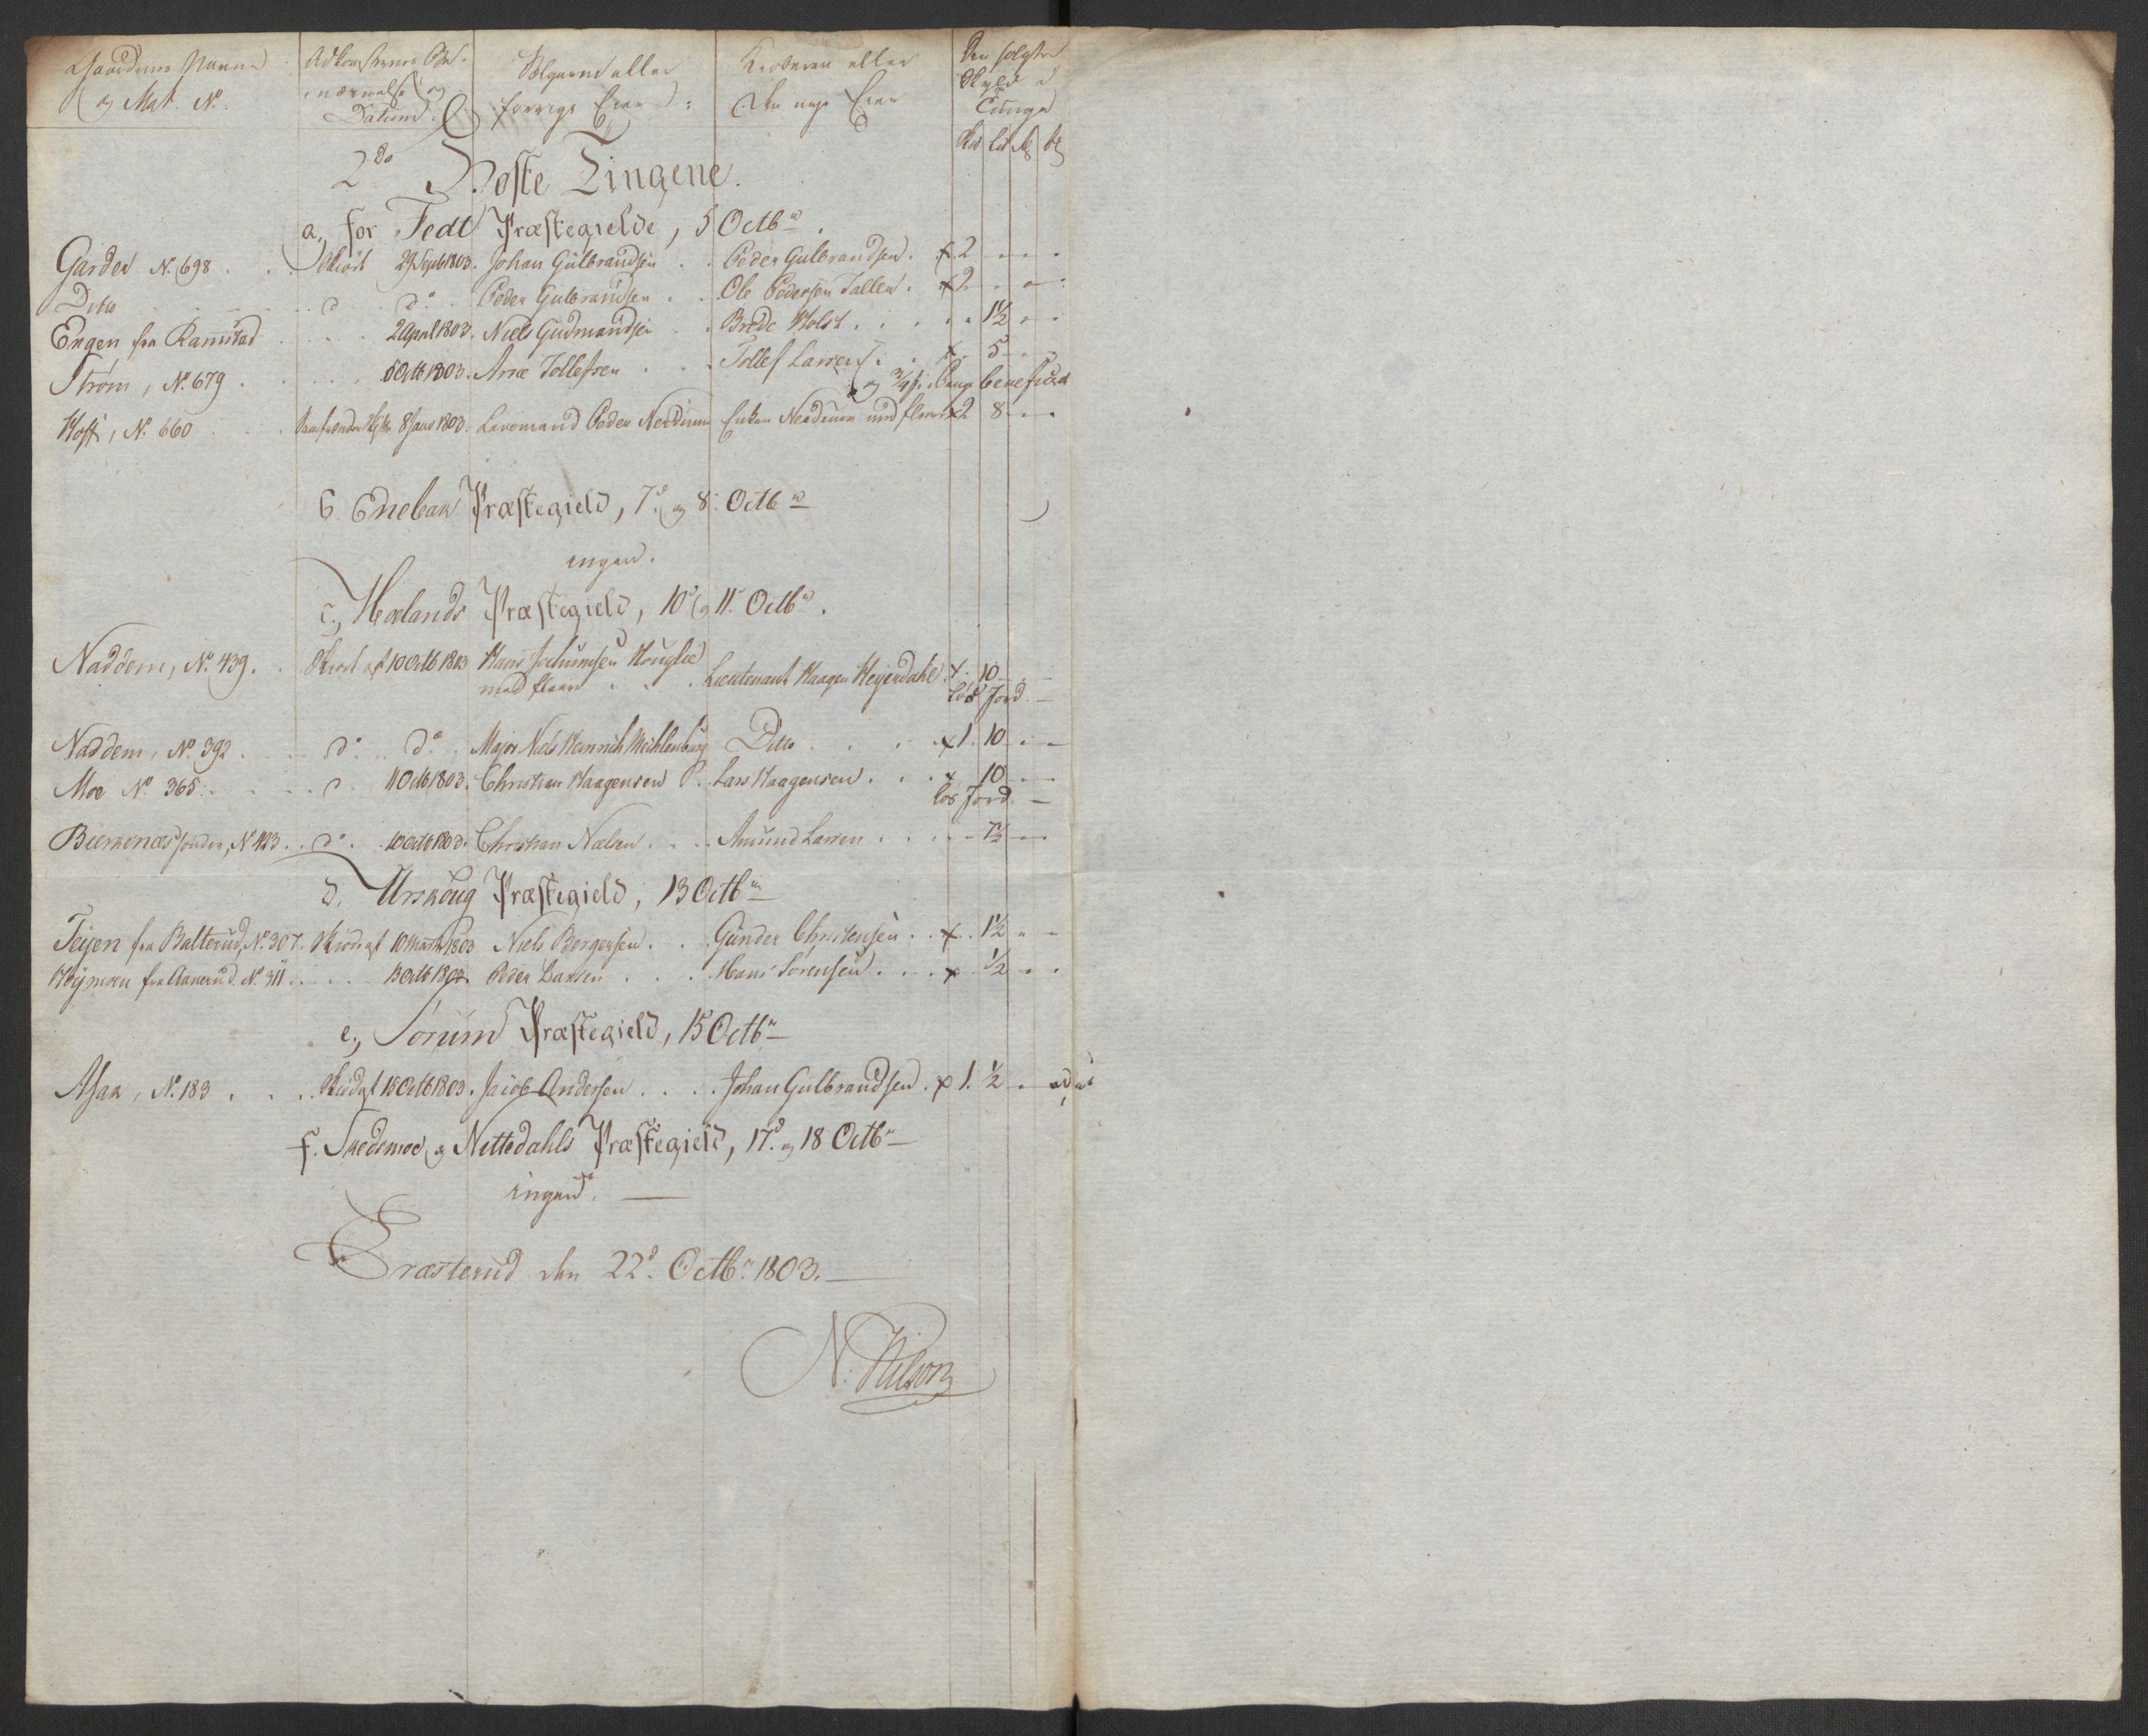 Gaardenes Navne og Mat. No.
Adkomsternes Benævnelse og Datum
Sælgeren eller forrige Eier:
Kiøberen eller den nye Eier
Den solgte Skyld i Tunge
2do Høste Tingene.
a, for Fedt Præstegield, 5 Octbr.
Garder No. 698 . . . Skiødt 29 Septb 1803. Johan Gulbrandsen . . Peder Gulbrandsen . x 2 - - -
Dito . . . d . do . Peder Gulbrandsen . . Ole Pedersen Tallen . x 2 - - -
Engen fra Ramstad . . . . 2 April 1803. Niels Gudmandsen . . Brede Holst . . . . 1½ - -
Strøm, No. 679 . . . . . 5 Octb 1803. Arne Tollefsen . . . Tollef Larsen . . x . 5 - -
og Penge beneficeret
Hoff, No. 660 . . . 8 Janv 1803. Lensmand Peder Nerdrum Enken Nerdrum med flere x 2 8 - -
b. Enebak Præstegield, 7de og 8. Octbr
ingen.
c, Hølands Præstegield, 10de og 11. Octbr.
Naddem, No. 439. . Skiødt af 10 Octb 1803 Hans Jochumsen Houglie
med fleere . . . Lieutenant Haagen Heyerdahl x . 10 - -
løs Jord. -
Naddem, No. 392 . . . do . do . Major Niels Henrich Mechlenburg Ditto . . . . x 1. 10 - -
Moe No. 365 . . . . d . 11 Octb 1803. Christian Haagensen . Lars Haagensen . . . x 10 - -
løs Jord. -
Bierkenæs søndre, No. 423 . . do . 10 Octb 1803. Christian Nielsen . . . Amund Larsen . . . . - 7½ - -
d. Urskoug Præstegield, 13 Octbr
Teigen fra Balterud, No. 307. Skiøde af 10 Marts 1803 Niels Bergersen . . . Gunder Christensen . . x . 1½ - -
Høymoen fra Aanerud No. 311 . . . . 13 Octb 1803. Peder Larsen . . . Hans Sørensen . . . x . ½ - -
e, Sørum Præstegield, 15 Octbr
Asak, No. 183 . . . Skiøde af 15 Octb 1803. Jacob Andersen . . . . Johan Gulbrandsen . x 1. ½ -
f. Skedsmoe og Nittedahls Præstegield, 17de og 18 Octbr
ingen.
Præsterud den 22de Octbr. 1803.
N: Nilson